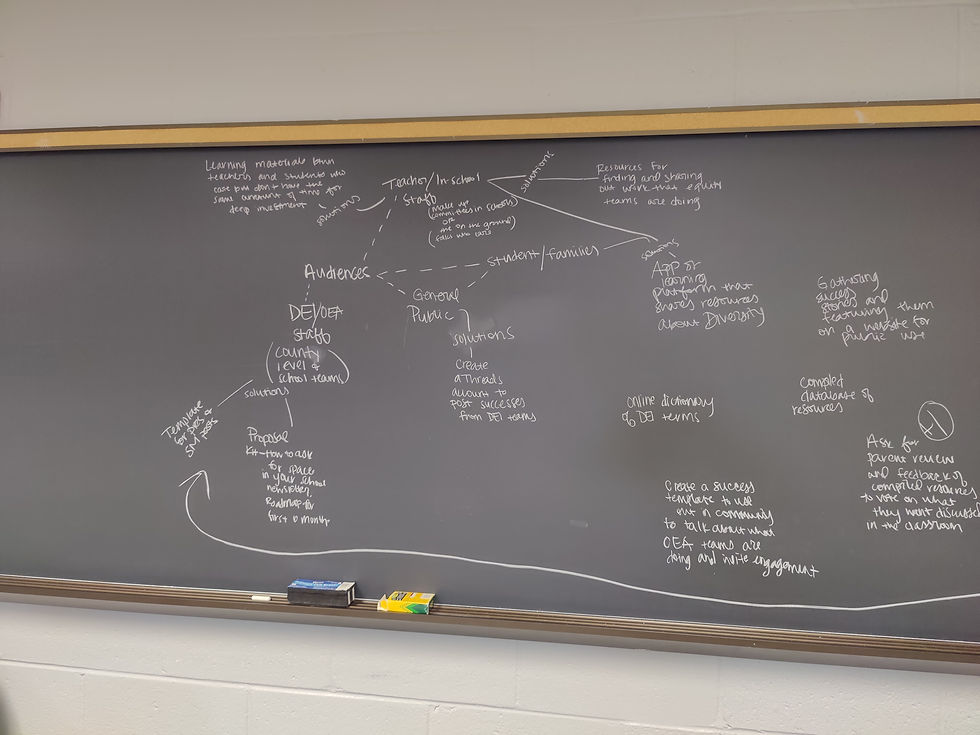 Learning materials btwn
teachers and students who
care but don't have the
same amount of time for
deep investment
solutions
Teacher/In-school
staff
(make up
committees in schools)
OR
the on the ground
(folks who care)
solutions
Resources for
finding and sharing
out work that equity
teams are doing
Student/families
solutions
App or
learning
platform that
shares resources
about Diversity
Audiences
General
Public
solutions
Create
a Threads
account to
post successes
from DEI teams
DEI/OEA
staff
(county
level &
school teams)
solutions
Template
for &
posts
Proposal
Kit - How to ask
for space
in your school
newsletter,
Roadmap for
first 10 month
Gathering
success
stories and
featuring them
on a website for
public use
online dictionary
of DEI terms
Compiled
database of
resources
Ask for
parent review
and feedback of
compiled resources
to vote on what
they want discussed
in the classroom
Create a success
template to use
out in community
to talk about what
OEA teams are
doing and invite engagement